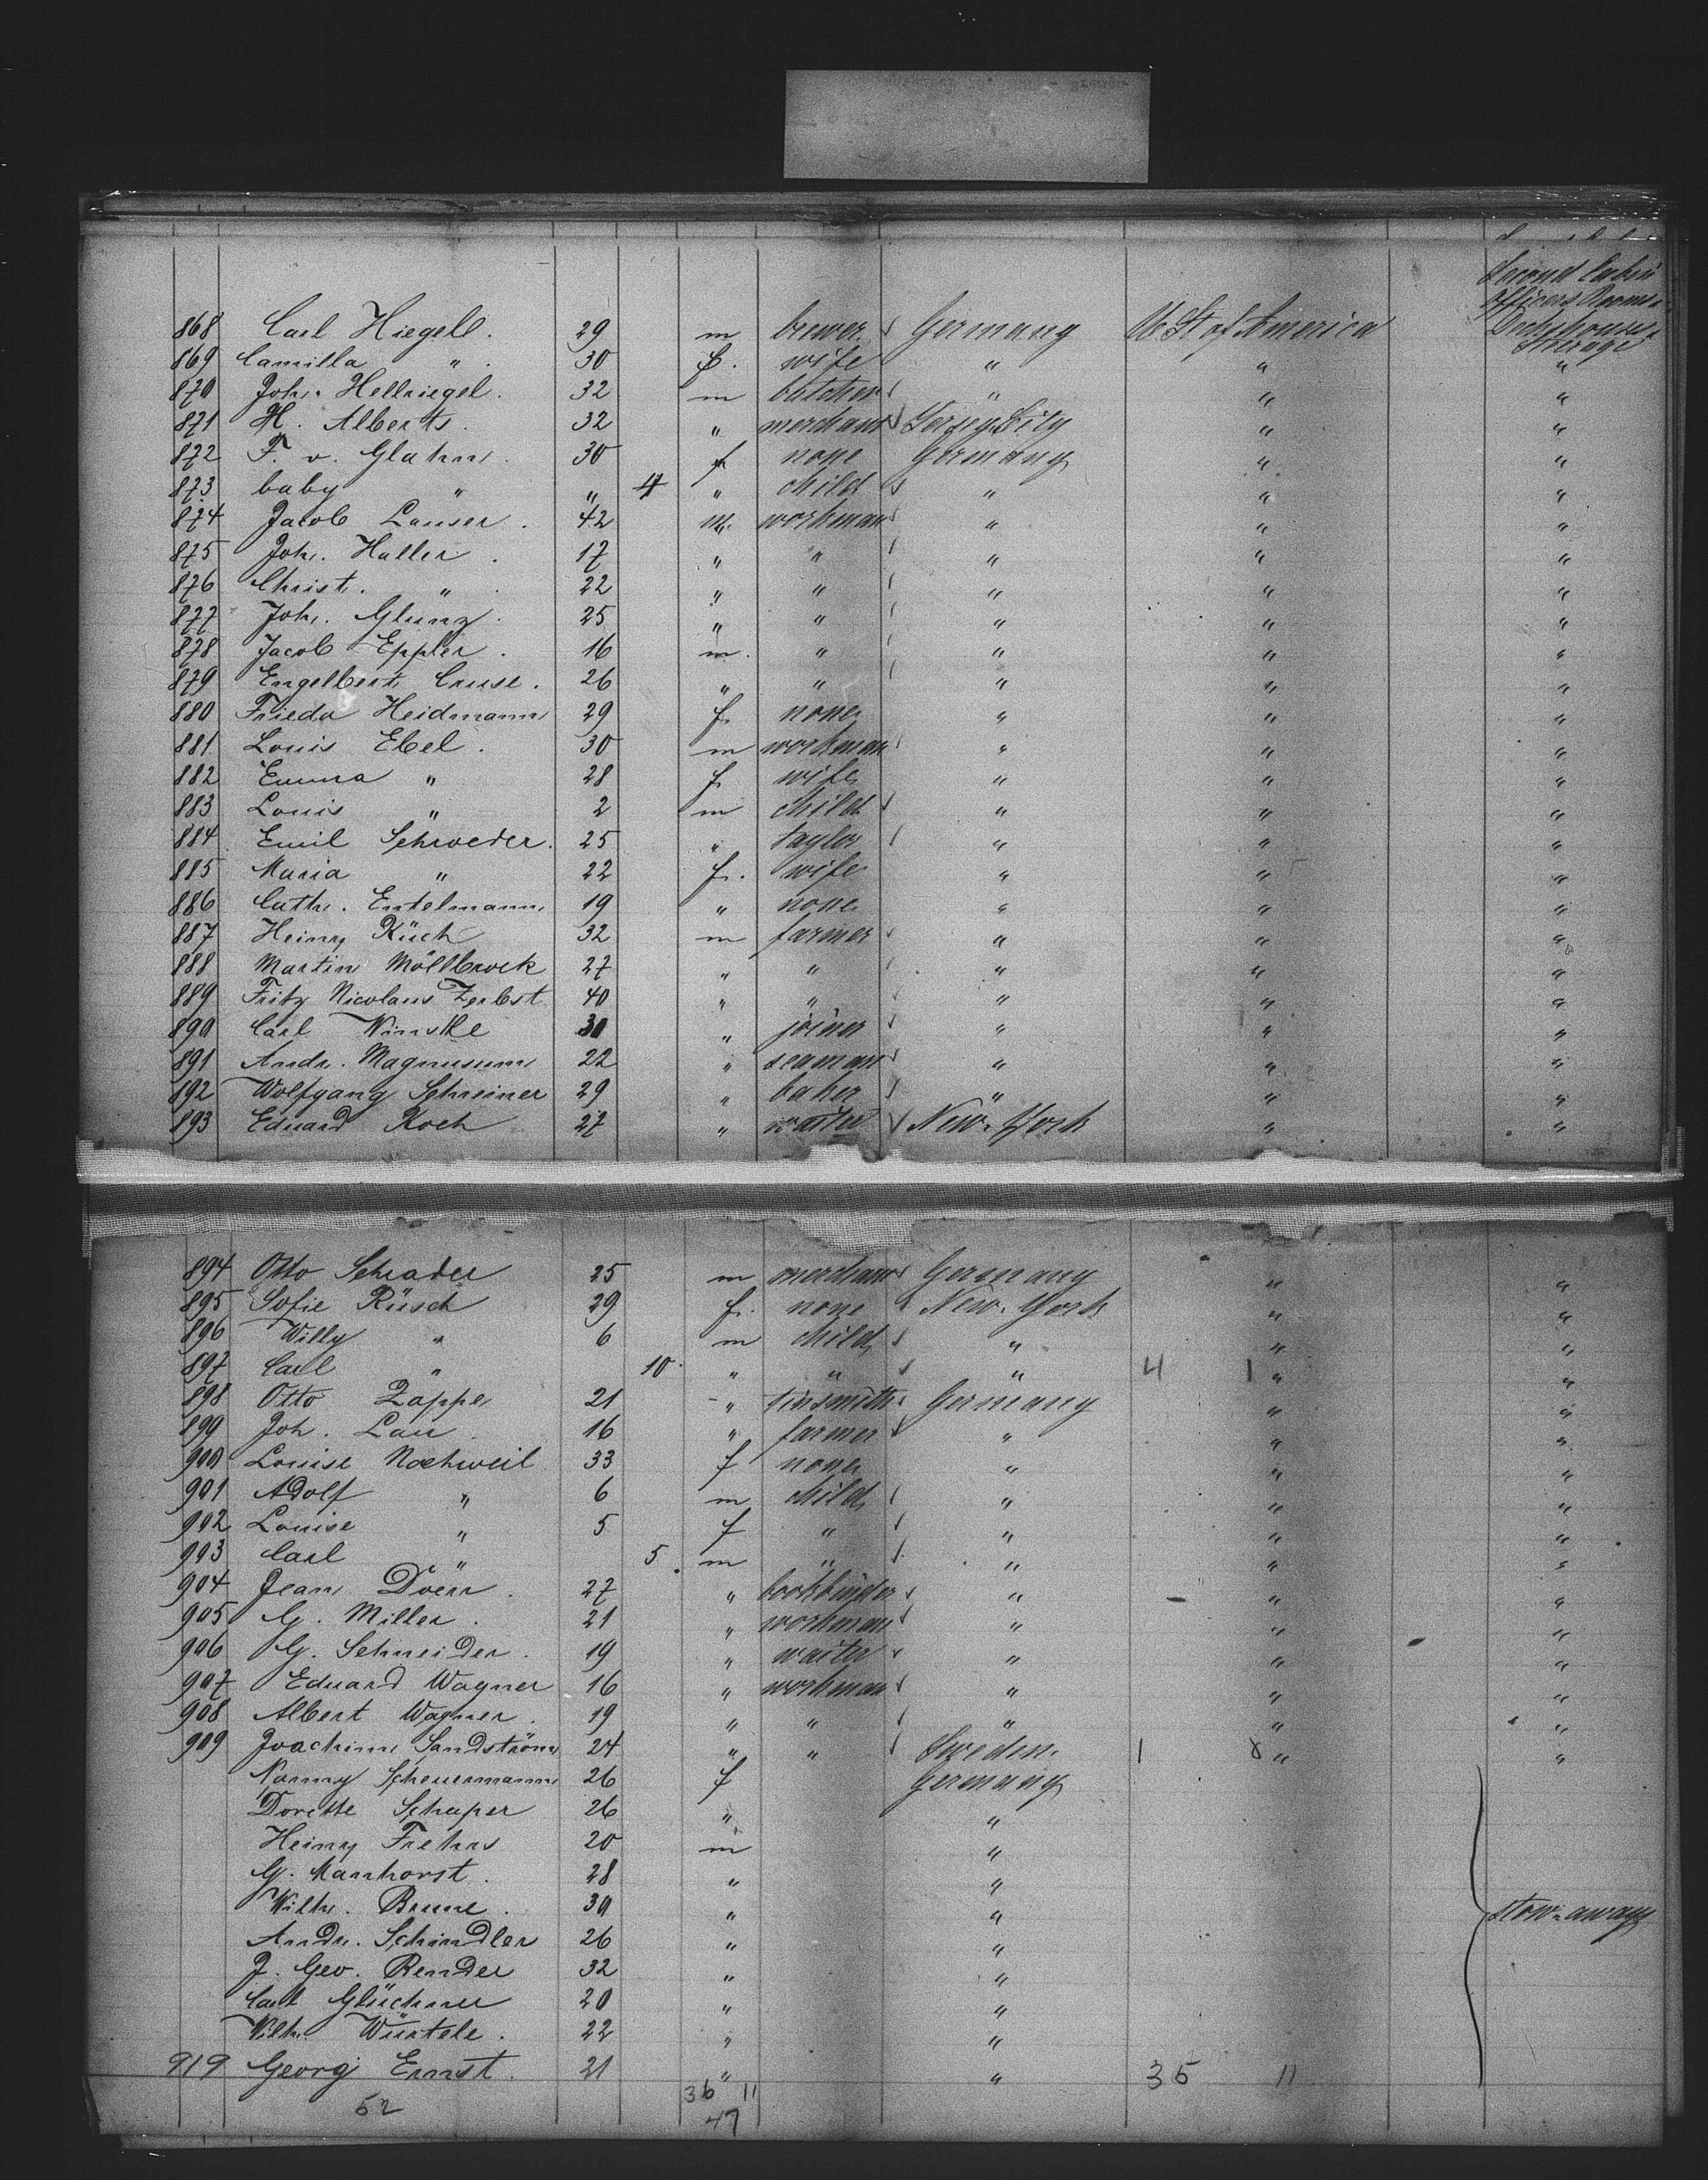 Second Cabin
Officers Rooms
868 Carl Hiegell. 29 m brewer Germany U. St. of America Deckhouse
Steerage
869 Camilla " 30 f. wife " " "
870 Joh. Hellriegel. 32 m butcher " " "
871 H. Alberts. 32 " merchant Jersey City " "
872 F. v. Glahn 30 f none Germany " "
873 baby " " 4 " child " " "
874 Jacob Lauser. 42 m. workman " " "
875 Joh. Haller. 17 " " " " "
876 Christ. " 22 " " " " "
877 Joh. Glunz. 25 " " " " "
878 Jacob Eppler. 16 m. " " " "
879 Engelbert Cruse. 26 " " " " "
880 Frieda Heidmann 29 f. none " " "
881 Louis Ebel. 30 m workman " " "
882 Emma " 28 f. wife " " "
883 Louis " 2 m child " " "
884 Emil Schroeder. 25 " taylor " " "
885 Maria " 22 f. wife " " "
886 Cath. Entelmann 19 " none " " "
887 Heinr. Rüsch 32 m farmer " " "
888 Martin Möllbrock 27 " " " " "
889 Fritz Nicolaus Zerbst 40 " " " " "
890 Carl 30 " joiner " " "
891 Andr. Magnusum 22 " seaman " " "
892 Wolfgang Schreiner 29 " baker " " "
893 Eduard Koch 27 " waiter New-York " "
894 Otto Schrader 25 m merchant Germany " "
895 Sofie Rüsch 29 f. none New-York " "
896 Willy " 6 m child " " "
897 Carl " 10 " " " 4 1 " "
898 Otto Zappe 21 " tinsmith Germany " "
899 Joh. Lau 16 " farmer " " "
900 Louise Nochweil 33 f none " " "
901 Adolf " 6 m child " " "
902 Louise " 5 f " " " "
903 Carl " 5 m " " " "
904 Jean Doerr. 27 " bookbinder " " "
905 G. Miller. 21 " workman " " "
906 G. Schneider. 19 " waiter " " "
907 Eduard Wagner 16 " workman " " "
908 Albert Wagner. 19 " " " " "
909 Joachim Sandström 24 " " Sweden. 1 8 " "
Nanny Scheuermann 26 f Germany
Dorette Schaper 26 " "
Heinr. Frehrs 20 m "
G. Manhorst. 28 " "
Wilh. Brune. 30 " " stow-aways
Andr. Schindler 26 " "
J. Geo. Bender 32 " "
Carl Glückner 20 " "
Wilh. Würtele. 22 " "
919 Georg Ernst. 21 " " 35 11
52 36 11
47